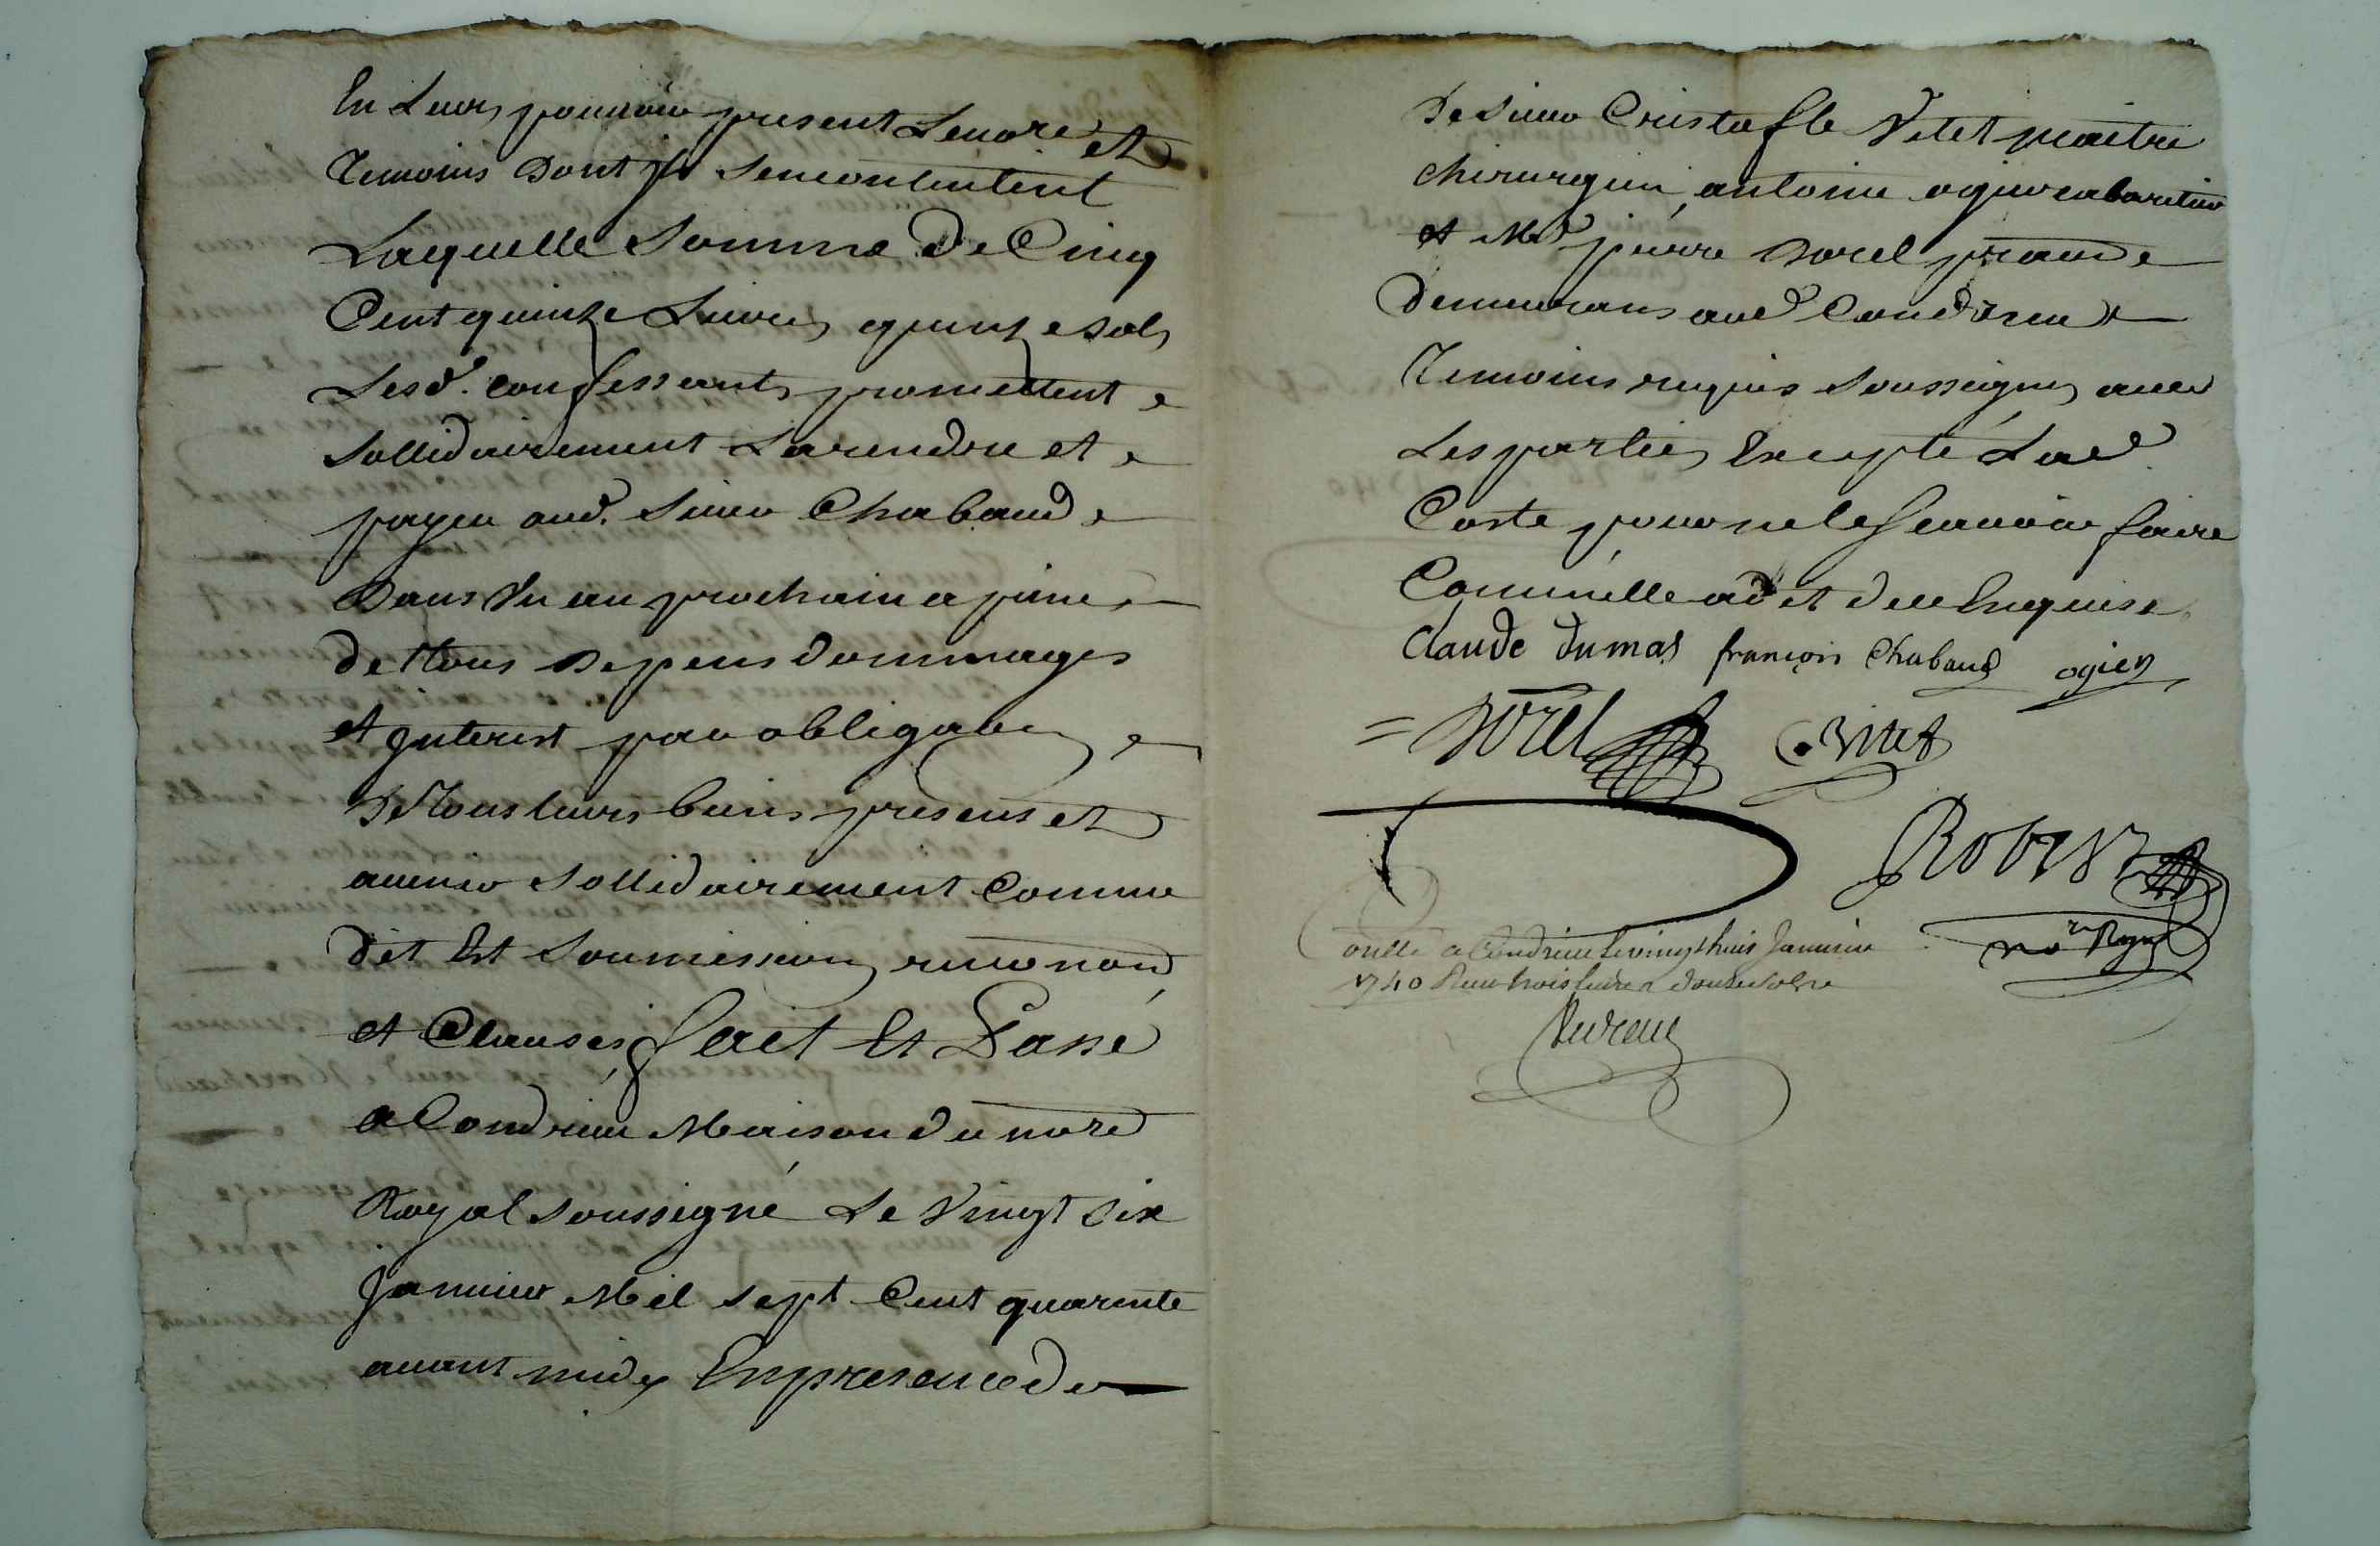 En Leurs pouvoir present Le nore et
Temoins Dont ils Se contentent
Laquelle Somme De Cinq
Cent quinze Livres quinze sols
Lesd. confessants promettent
Sollidairement La rendre et
payer aud. Sieur Chabaud
Dans Un an prochain a peine
de tous Depens dommages
et Interest par obligation
De Tous leurs biens presens et
avenir Sollidairement Comme
dit Est Soumission, renonon
et Clauses, fait Et Passé
a Condrieu Maison du nore
Royal Soussigné Le Vingt Six
Janvier Mil Sept Cent quarente
avant midy En presence de
De Sieur Cristofle Vitet maitre
chirurgien, antoine ogier cabaretier
et Me pierre Borel pratn
demeurans aud Condrieu
Temoins requis Soussignes avec
Les parties Excepté Lad.
Coste pour ne le scavoir faire
Comme elle a dit de ce Enquise
Claude dumas françois Chabaud ogier
= Borel C. Vitet
Robert
nore Royal
onllé a Condrieu le vingt huis Janvier
1740 Reçu trois livres douze sols